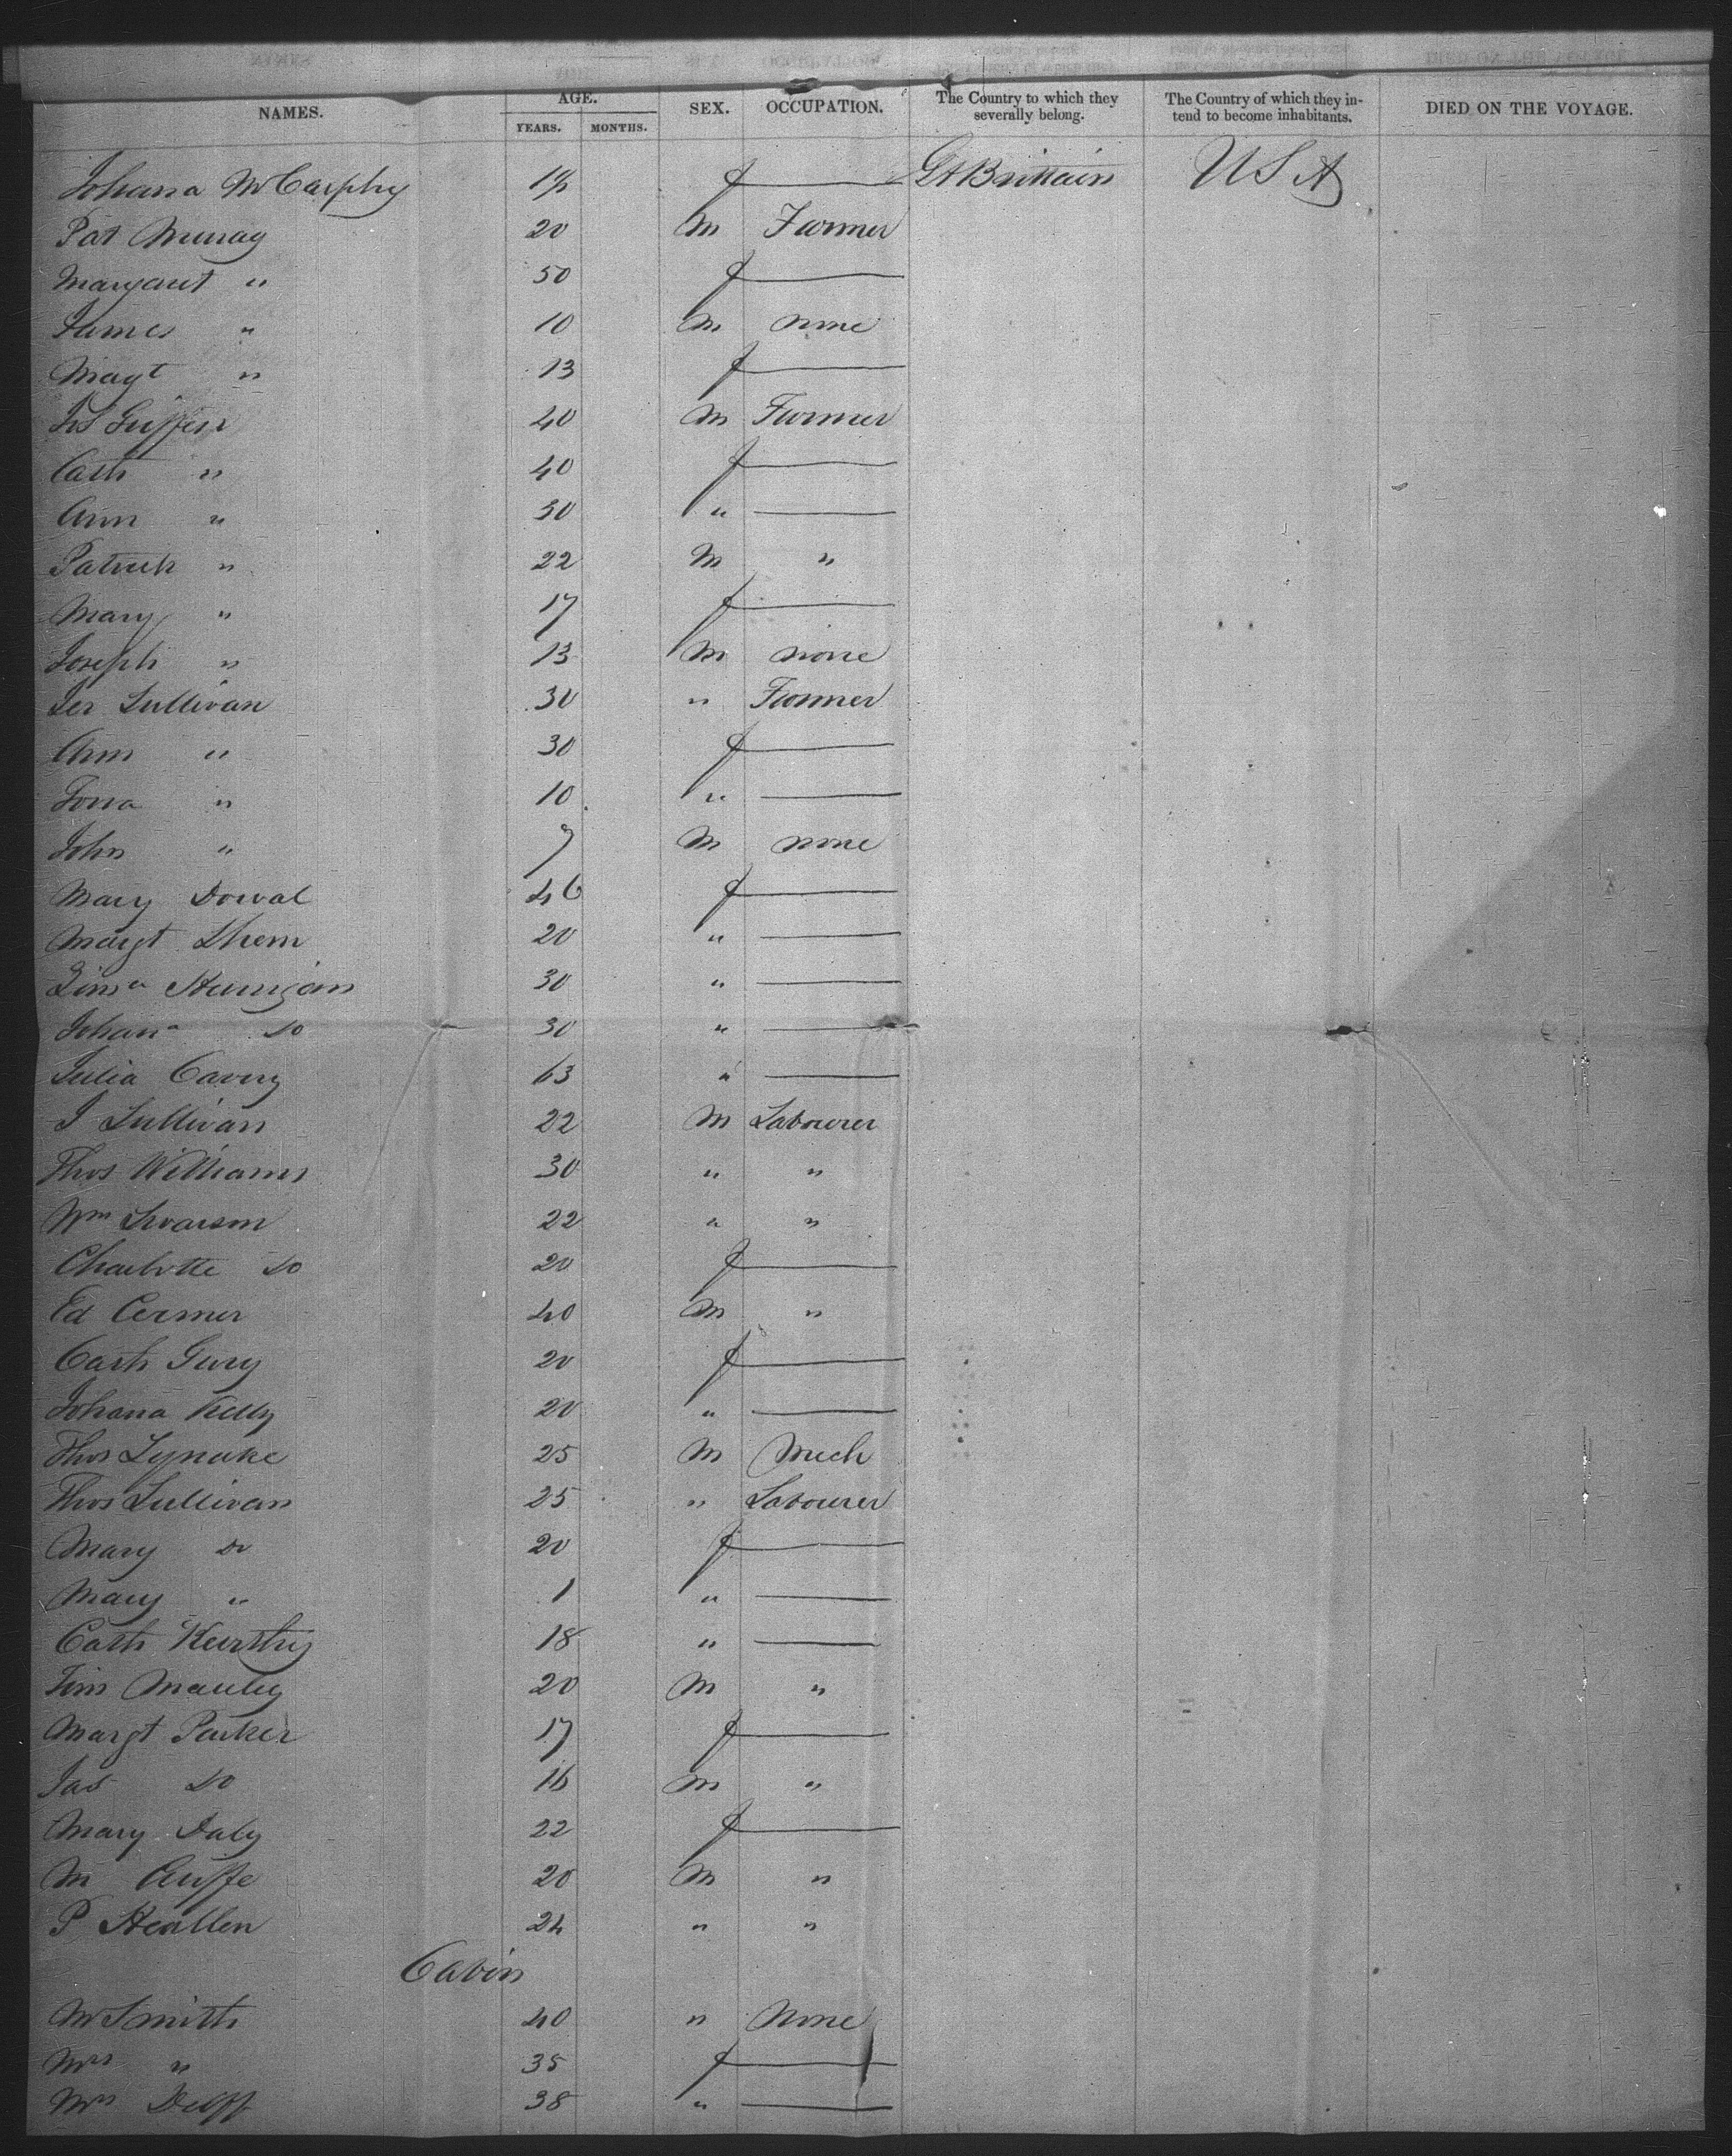 NAMES. AGE. YEARS. MONTHS. SEX. OCCUPATION. The Country to which they severally belong. The Country of which they intend to become inhabitants. DIED ON THE VOYAGE.
Johana McCarphy f — Gt Brittain USA
Pat Murray 20 M Farmer
Margaret " 50 f —
James " 10 M none
Magt " 13 f —
40 M Farmer
Cath " 40 f —
Ann " 30 " —
Patrick " 22 M "
Mary " 17 f —
Joseph " 13 M none
Jer Sullivan 30 " Farmer
Ann " 30 f —
" 10 " —
John " 7 M none
Mary Dowal 46 f —
Margt Shem 20 " —
30 " —
Johana Do 30 " —
Julia Cavery 63 " —
J Sullivan 22 M Labourer
Thos Williams 30 " "
Wm Swarson 22 " "
Charlotte Do 20 f —
Ed Cermer 40 M "
Cath Gury 20 f —
Johana Kelly 20 " —
Thos Lynake 25 M Mech
Thos Sullivan 25 " Labourer
Mary Do 20 f —
Mary " 1 " —
Cath 18 " —
Tim Manley 20 M "
Margt Parker 17 f —
Jas Do 16 M "
Mary Daly 22 f —
M 20 M "
P Heallen 24 " "
Cabin
Mr Smith 40 " None
Mrs " 35 f —
Mrs Delff 38 " —